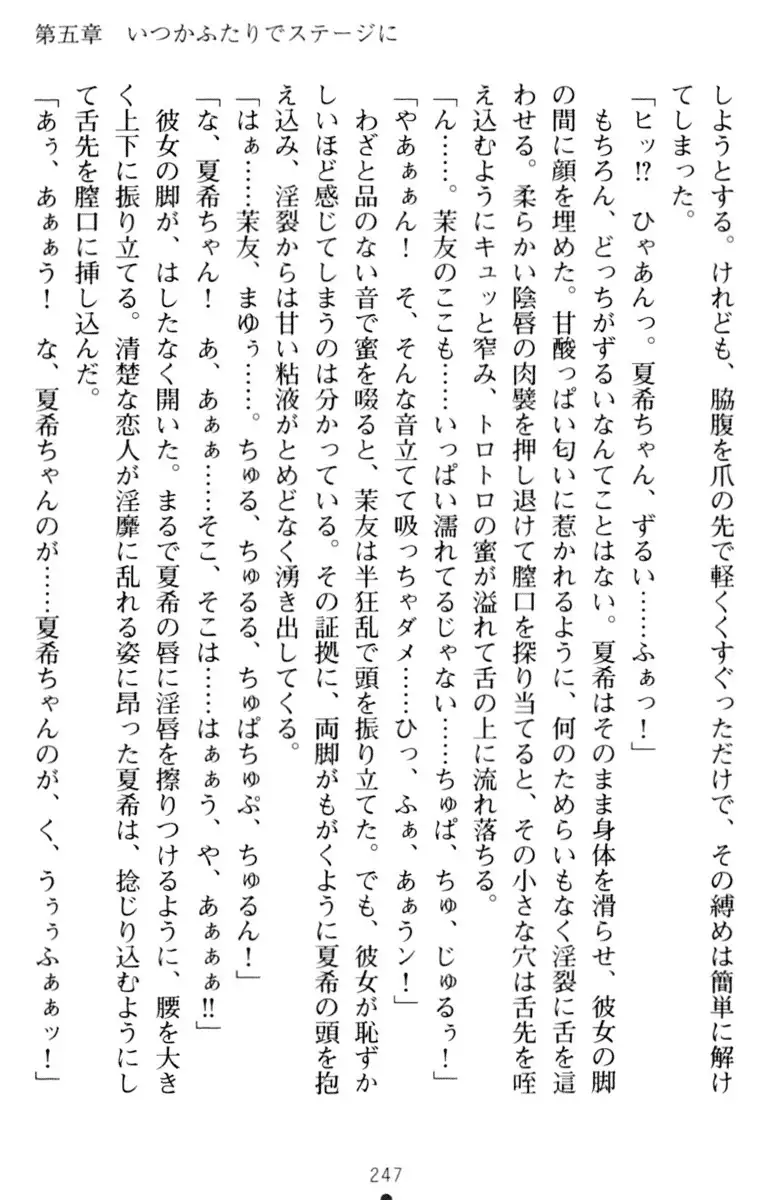 第五章　いつかふたりでステージに
しようとする。けれども、脇腹を爪の先で軽くくすぐっただけで、その縛めは簡単に解け
てしまった。
「ヒッ!?　ひゃあんっ。夏希ちゃん、ずるい……ふぁっ！」
　もちろん、どっちがずるいなんてことはない。夏希はそのまま身体を滑らせ、彼女の脚
の間に顔を埋めた。甘酸っぱい匂いに惹かれるように、何のためらいもなく淫裂に舌を這
わせる。柔らかい陰唇の肉襞を押し退けて膣口を探り当てると、その小さな穴は舌先を咥
え込むようにキュッと窄み、トロトロの蜜が溢れて舌の上に流れ落ちる。
「ん……。茉友のここも……いっぱい濡れてるじゃない……ちゅぱ、ちゅ、じゅるぅ！」
「やあぁぁん！　そ、そんな音立てて吸っちゃダメ……ひっ、ふぁ、あぁうン！」
　わざと品のない音で蜜を啜ると、茉友は半狂乱で頭を振り立てた。でも、彼女が恥ずか
しいほど感じてしまうのは分かっている。その証拠に、両脚がもがくように夏希の頭を抱
え込み、淫裂からは甘い粘液がとめどなく湧き出してくる。
「はぁ……茉友、まゆぅ……。ちゅる、ちゅるる、ちゅぱちゅぷ、ちゅるん！」
「な、夏希ちゃん！　あ、あぁぁ……そこ、そこは……はぁぁう、や、あぁぁぁ!!」
　彼女の脚が、はしたなく開いた。まるで夏希の唇に淫唇を擦りつけるように、腰を大き
く上下に振り立てる。清楚な恋人が淫靡に乱れる姿に昂った夏希は、捻じり込むようにし
て舌先を膣口に挿し込んだ。
「あぅ、あぁぁう！　な、夏希ちゃんのが……夏希ちゃんのが、く、うぅぅふぁぁッ！」
247